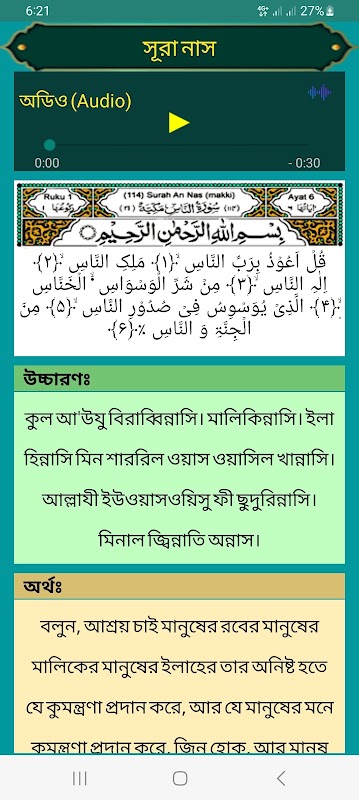 6:21
4G+ 27%
সূরা নাস
অডিও (Audio)
0:00 - 0:30
Ruku 1 (114) Surah An Nas (makki) Ayat 6
بِسْمِ اللّٰهِ الرَّحْمٰنِ الرَّحِيْمِ
قُلْ اَعُوْذُ بِرَبِّ النَّاسِ ۙ﴿۱﴾ مَلِكِ النَّاسِ ۙ﴿۲﴾
اِلٰهِ النَّاسِ ۙ﴿۳﴾ مِنْ شَرِّ الْوَسْوَاسِ ۬ۙ الْخَنَّاسِ
ۙ﴿۴﴾ الَّذِیْ یُوَسْوِسُ فِیْ صُدُوْرِ النَّاسِ ۙ﴿۵﴾ مِنَ
الْجِنَّۃِ وَ النَّاسِ ٪﴿۶﴾
উচ্চারণঃ
কুল আ'উযু বিরাব্বিন্নাসি। মালিকিন্নাসি। ইলা
হিন্নাসি মিন শাররিল ওয়াস ওয়াসিল খান্নাসি।
আল্লাযী ইউওয়াসওয়িসু ফী ছুদুরিন্নাসি।
মিনাল জ্বিন্নাতি অন্নাস।
অর্থঃ
বলুন, আশ্রয় চাই মানুষের রবের মানুষের
মালিকের মানুষের ইলাহের তার অনিষ্ট হতে
যে কুমন্ত্রণা প্রদান করে, আর যে মানুষের মনে
কুমন্ত্রণা প্রদান করে, জিন হোক, আর মানুষ